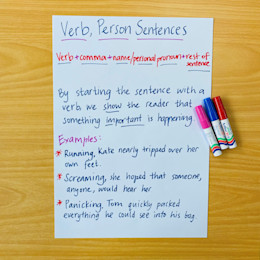 Verb, Person Sentences
Verb + comma + name/personal pronoun + rest of
sentence
By starting the sentence with a
verb we show the reader that
something important is happening.
Examples:
* Running, Kate nearly tripped over her
own feet.
* Screaming, she hoped that someone,
anyone, would hear her
* Panicking, Tom quickly packed
everything he could see into his bag.